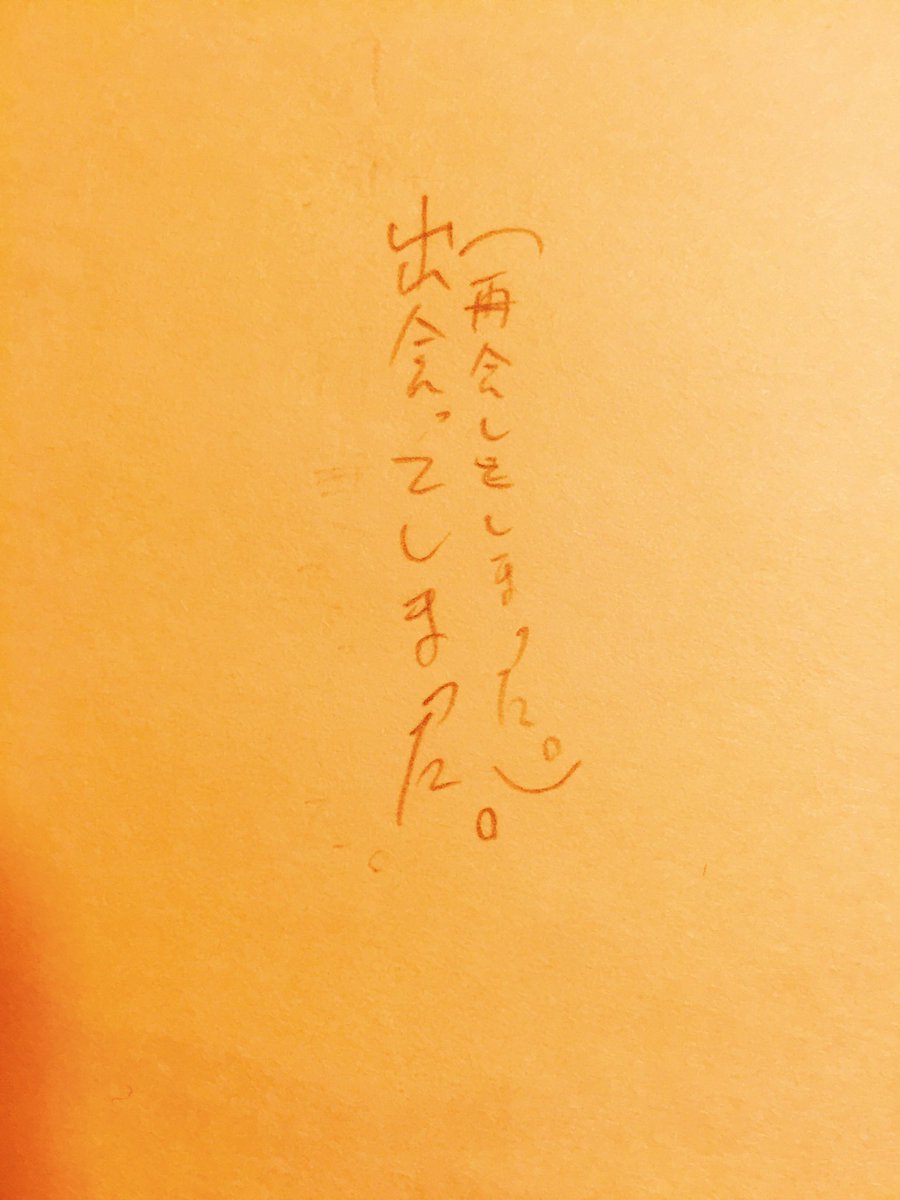 （再会してしまった。）
出会ってしまった。